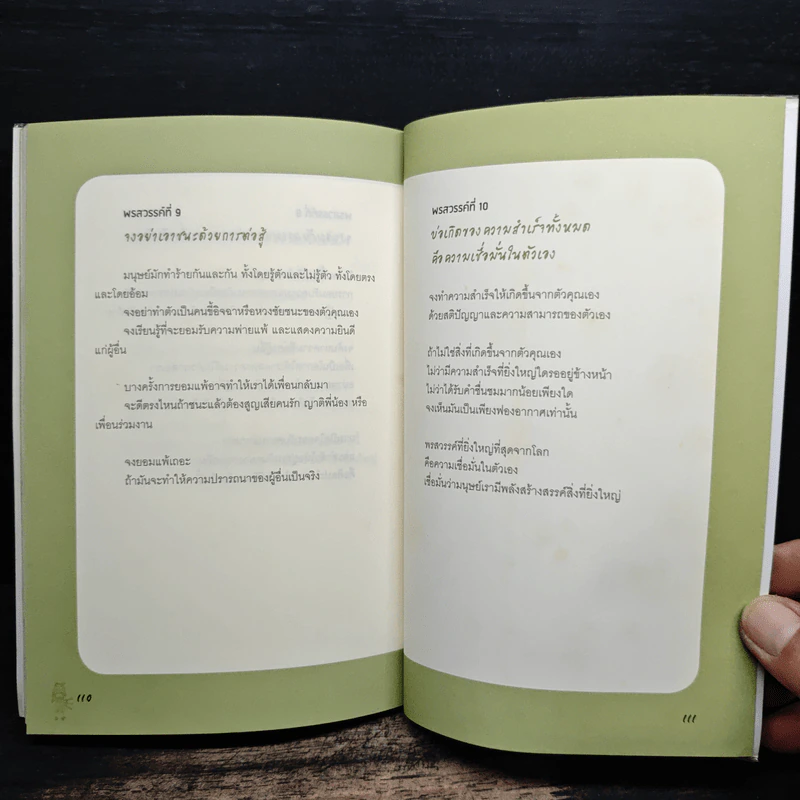 พรสวรรค์ที่ 9
จงอย่าเอาชนะด้วยการต่อสู้
มนุษย์มักทำร้ายกันและกัน ทั้งโดยรู้ตัวและไม่รู้ตัว ทั้งโดยตรง
และโดยอ้อม
จงอย่าทำตัวเป็นคนขี้อิจฉาหรือหวงชัยชนะของตัวคุณเอง
จงเรียนรู้ที่จะยอมรับความพ่ายแพ้ และแสดงความยินดี
แก่ผู้อื่น
บางครั้งการยอมแพ้อาจทำให้เราได้เพื่อนกลับมา
จะดีตรงไหนถ้าชนะแล้วต้องสูญเสียคนรัก ญาติพี่น้อง หรือ
เพื่อนร่วมงาน
จงยอมแพ้เถอะ
ถ้ามันจะทำให้ความปรารถนาของผู้อื่นเป็นจริง
110
พรสวรรค์ที่ 10
บ่อเกิดของความสำเร็จทั้งหมด
คือความเชื่อมั่นในตัวเอง
จงทำความสำเร็จให้เกิดขึ้นจากตัวคุณเอง
ด้วยสติปัญญาและความสามารถของตัวเอง
ถ้าไม่ใช่สิ่งที่เกิดขึ้นจากตัวคุณเอง
ไม่ว่ามีความสำเร็จที่ยิ่งใหญ่ใดรออยู่ข้างหน้า
ไม่ว่าได้รับคำชื่นชมมากน้อยเพียงใด
จงเห็นมันเป็นเพียงฟองอากาศเท่านั้น
พรสวรรค์ที่ยิ่งใหญ่ที่สุดจากโลก
คือความเชื่อมั่นในตัวเอง
เชื่อมั่นว่ามนุษย์เรามีพลังสร้างสรรค์สิ่งที่ยิ่งใหญ่
111